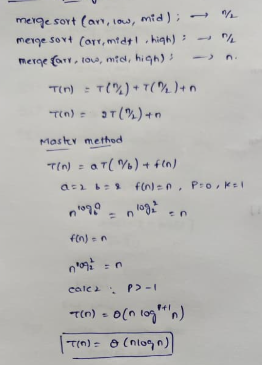 mergesort (arr, low, mid) ; → n/2
mergesort (arr, mid+1, high) ; → n/2
merge (arr, low, mid, high) ; → n.
T(n) = T(n/2) + T(n/2) + n
T(n) = 2T(n/2) + n
Master method
T(n) = aT(n/b) + f(n)
a=2 b=2 f(n)=n, P=0, k=1
n^log_b^a = n^log_2^2 = n
f(n) = n
n^log_2^2 = n
calc 2 : P>-1
T(n) = θ(n log^P+1 n)
T(n) = θ(nlogn)